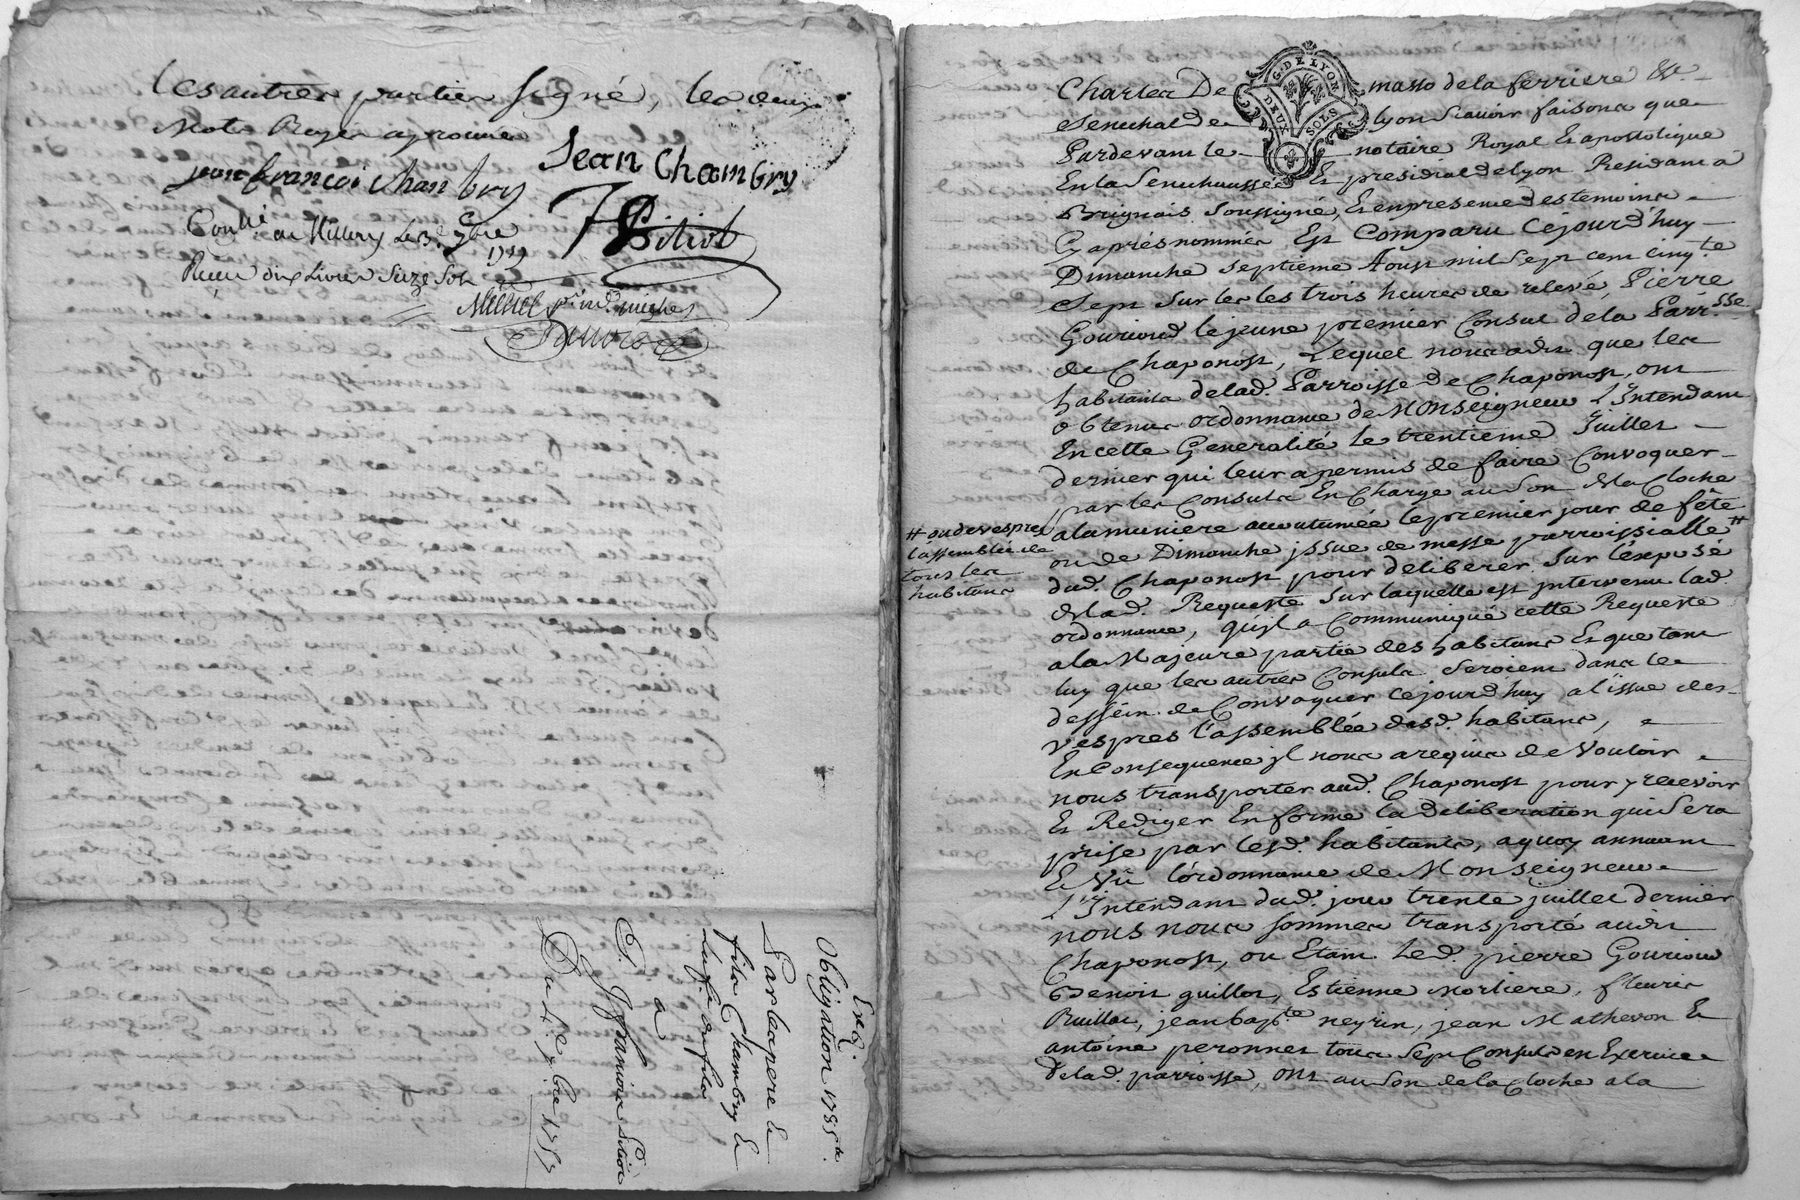 les autres parties signé, les deux
Mots Rayés aprouvés
jean françoi chambry
Jean Chambry
Pitiot
Con.lé au Millery le 3.e 7bre
1757
Reçu dix Livres seize sols
Exp.
Obligation 1785.tt
Par les pere &
fils Chambry &
à
S.r françois Pitiot
Du 4.e 7.bre 1757
Charles De masso de la ferriere &c.
G. DE LYON
DEUX SOLS
Senechal de lyon Scavoir faisons que
Pardevant le notaire Royal Et apostolique
En la Senechaussée Et presidial de lyon Residant à
Brignais Soussigné, Et en presence des temoins
Cy après nommés Est Comparu Cejourd'huy
Dimanche septieme Aoust mil Sept cent cinq.te
Sept Sur les les trois heures de relevé, Pierre
Gouriond le jeune premier Consul de la Parr.sse
de Chaponost, Lequel nous a dit que les
habitants de lad. Parroisse de Chaponost, ont
obtenus ordonnance de Monseigneur L'Intendant
En cette Generalité le trentieme Juillet
dernier qui leur a permis de faire Convoquer
par les Consuls En Charge au Son de la Cloche
# ou de vespres
l'assemblée de
tous les
habitans
a la maniere accoutumée le premier jour de fête
ou de Dimanche jssue de messe parroissialle #
dud. Chaponost pour deliberer Sur l'exposé
de lad. Requeste Sur laquelle est jntervenu lad.
ordonnance, qu'jl a Communiqué cette Requeste
a la Majeure partie des habitans Et que tant
luy que les autres Consuls Seroient dans le
dessein de Convoquer cejourd'huy a l'issue des
vespres l'assemblée desd. habitans,
En Consequence jl nous a requis de Vouloir
nous transporter aud. Chaponost pour y recevoir
Et Rediger En forme la deliberation qui Sera
prise par lesd. habitants, a quoy annuant
Et Vû l'ordonnance de Monseigneur
L'Intendant dud. jour trente juillet dernier
nous nous sommes transporté audit
Chaponost, ou Etant Led. pierre Gouriond
Benoit guillot, Estienne Morliere, fleurie
Ruillat, jean bap.te neyrin, jean Mathevon &
antoine peronnet tous Sept Consuls en Exercice
de lad. parroisse, ont au Son de la Cloche a la